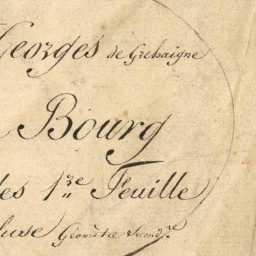 Georges de Grehaigne
Bourg
des 1.re Feuille
Géomètre Second.re